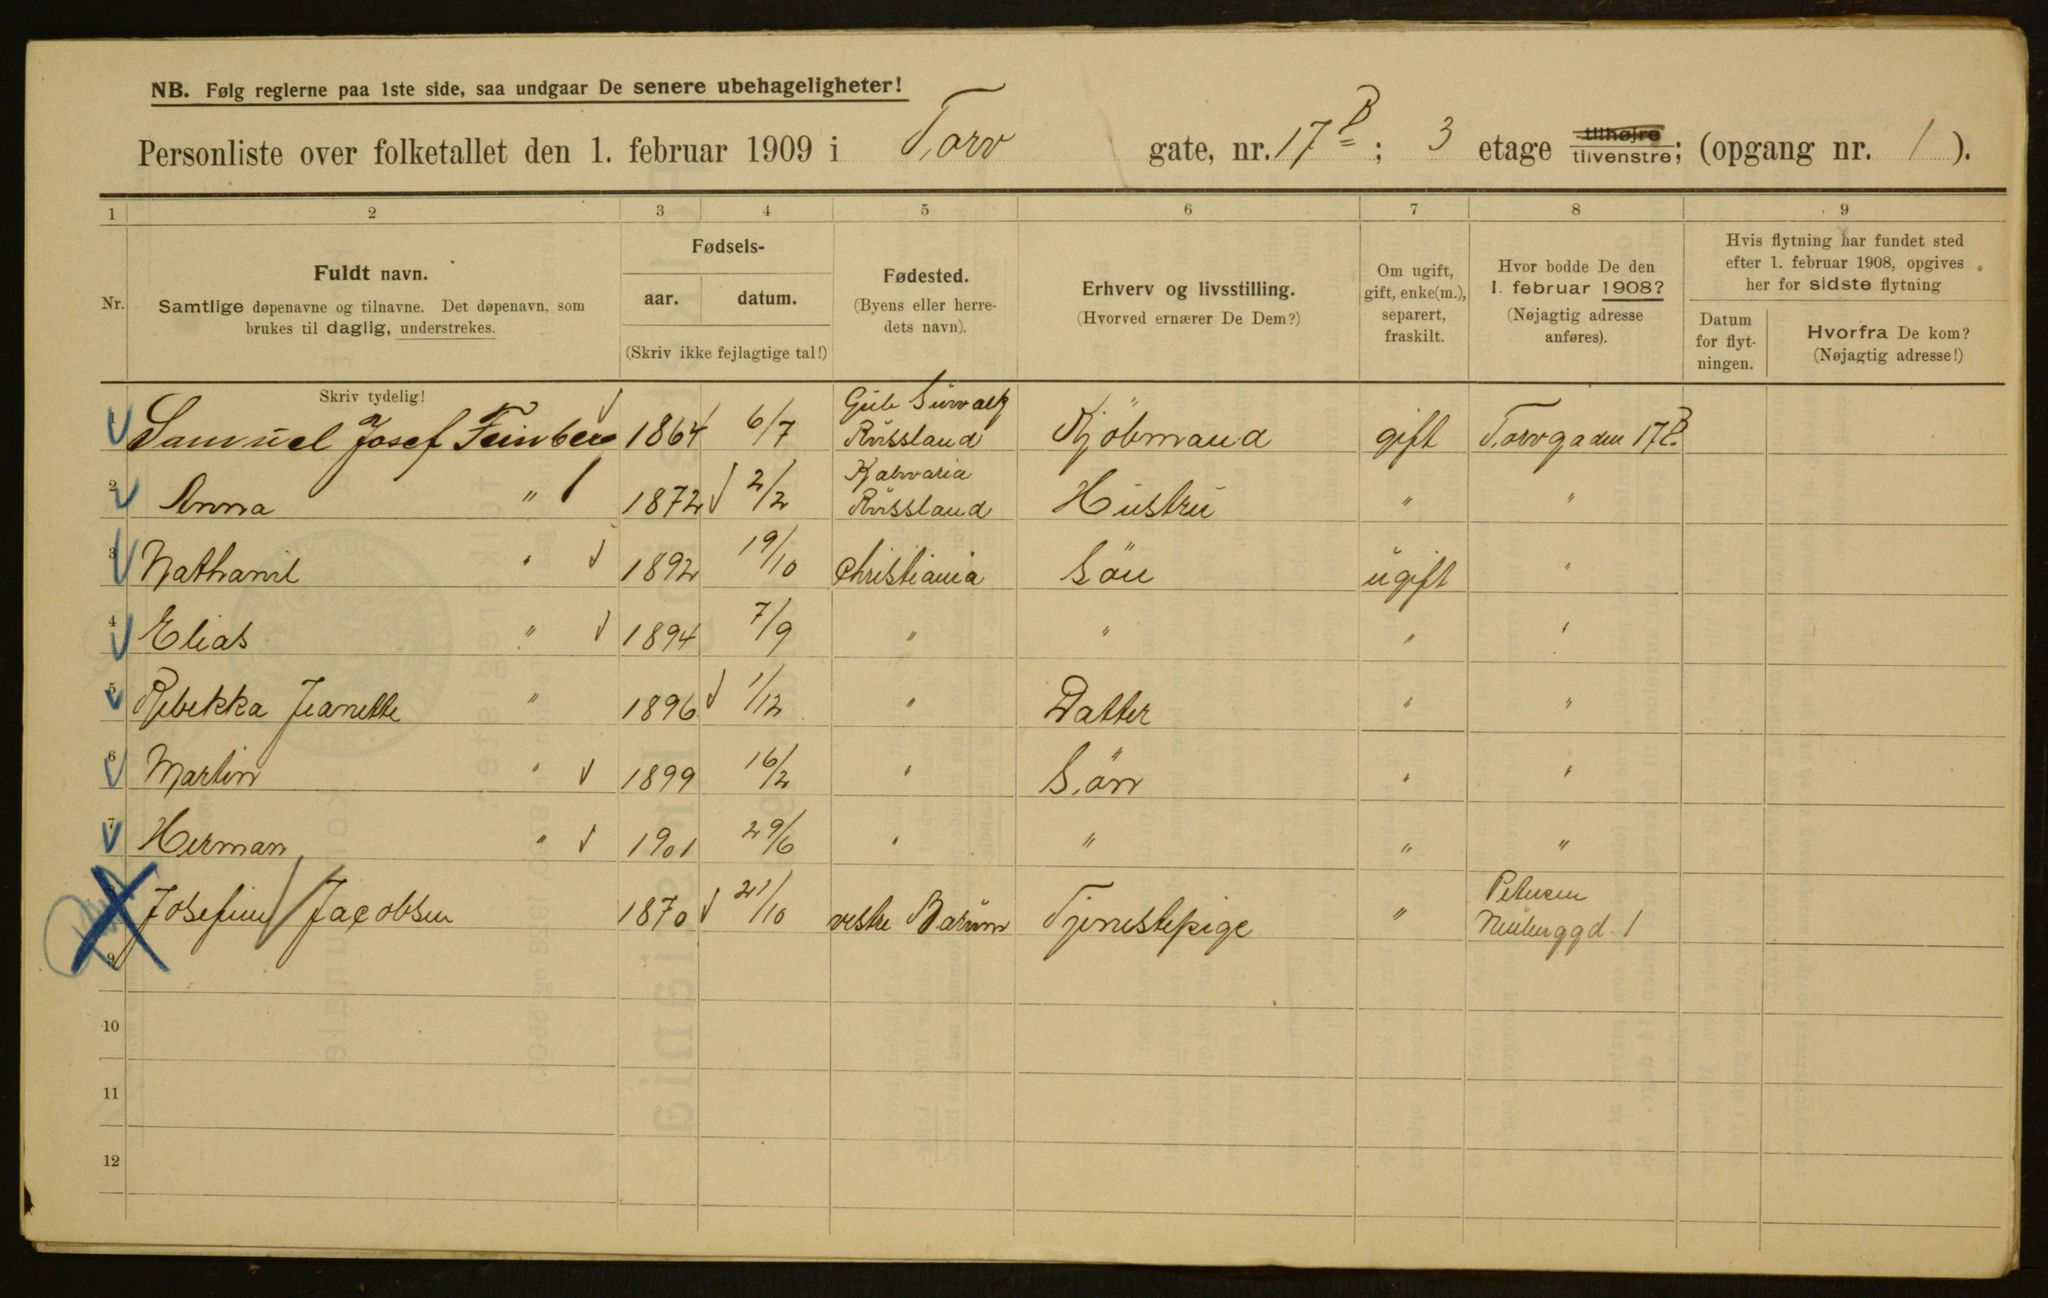 NB. Følg reglerne paa 1ste side, saa undgaar De senere ubehageligheter!
Personliste over folketallet den 1. februar 1909 i Torv gate, nr. 17 B; 3 etage tilhøjre tilvenstre; (opgang nr. 1 ).
1 2 3 4 5 6 7 8 9
Nr.
Fuldt navn.
Samtlige døpenavne og tilnavne. Det døpenavn, som
brukes til daglig, understrekes.
Fødsels-
aar. datum.
(Skriv ikke fejlagtige tal!)
Fødested.
(Byens eller herre-
dets navn).
Erhverv og livsstilling.
(Hvorved ernærer De Dem?)
Om ugift,
gift, enke(m.),
separert,
fraskilt.
Hvor bodde De den
1. februar 1908?
(Nøjagtig adresse
anføres).
Hvis flytning har fundet sted
efter 1. februar 1908, opgives
her for sidste flytning
Datum
for flyt-
ningen.
Hvorfra De kom?
(Nøjagtig adresse!)
Skriv tydelig!
1 Samuel Josef Feinberg 1864 6/7 Russland Kjöbmand gift Torvgaden 17 B.
2 Anna " 1872 2/2 Kalvaria Russland Hustru " "
3 Nathanil " 1892 19/10 Christiania Sön ugift "
4 Elias " 1894 7/9 " " " "
5 Rebekka Jeanette " 1896 1/12 " Datter " "
6 Martin " 1899 16/2 " Sön " "
7 Herman " 1901 29/6 " " " "
Josefine Jacobsen 1870 21/10 vestre Bærum Tjenestepige " Petersen
1
9
10
11
12